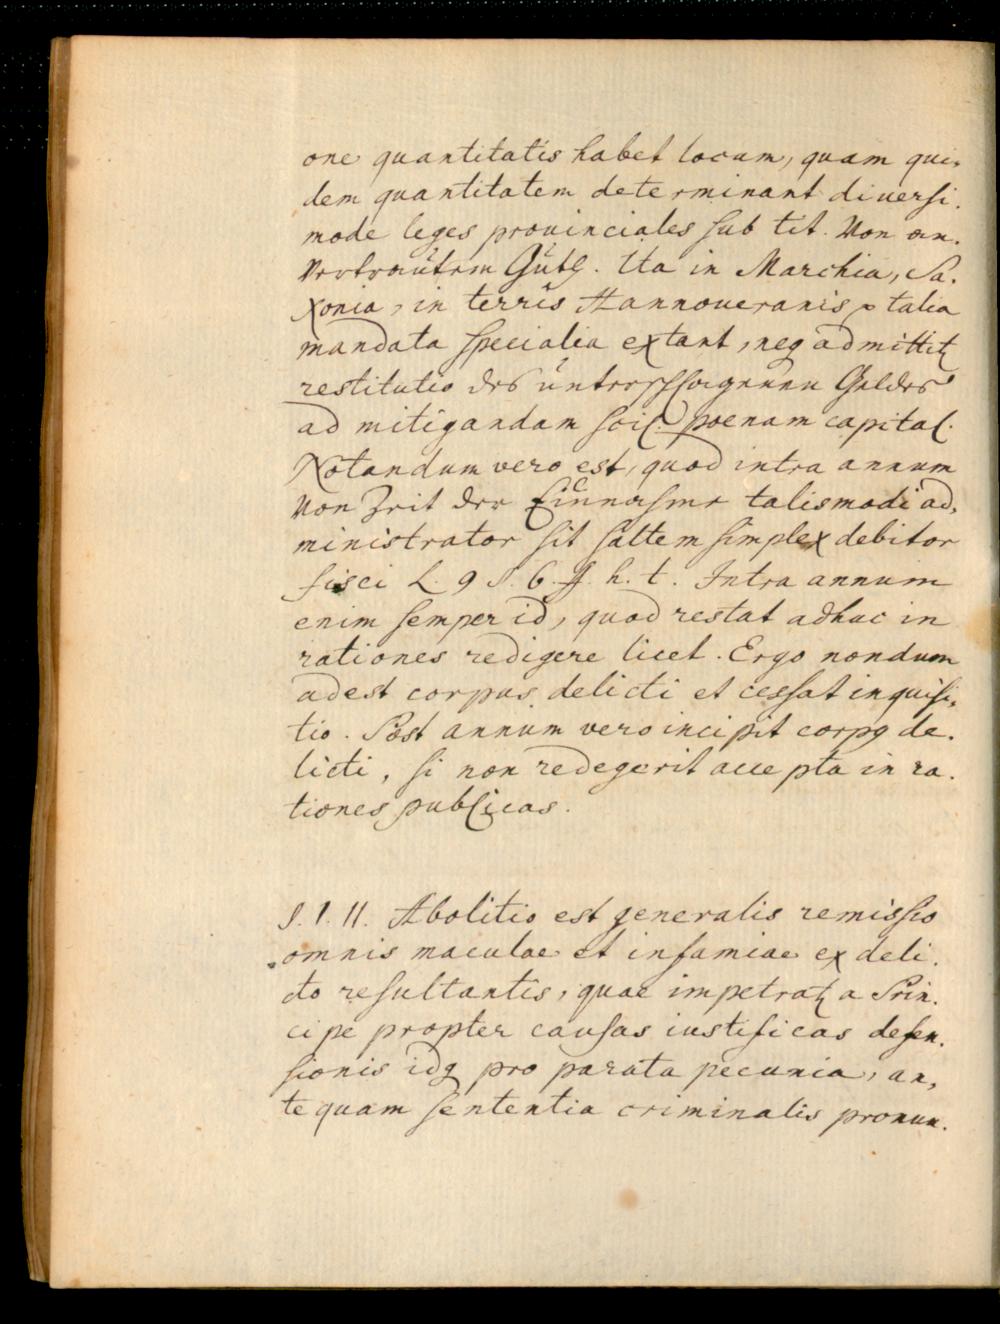 one quantitatis habet locum, quam qui-
dem quantitatem determinant diversi-
mode leges provinciales sub tit. Von an-
vertrautem Guth. Ita in Marchia, Sa-
xonia, in terris Hannoveranis p talia
mandata specialia extant, neq admittitz
restitutio des unterschlagenen Geldes
ad mitigandam scil. poenam capital.
Notandum vero est, quod intra annum
von Zeit der Einnahme talismodi ad-
ministrator sit saltem simplex debitor
fisci L. 9 §. 6. ff. h. t. Intra annum
enim semper id, quod restat adhuc in
rationes redigere licet. Ergo nondum
adest corpus delicti et cessat inquisi-
tio. Post annum vero incipit corpq de-
licti, si non redegerit accepta in ra-
tiones publicas.
§. 1. 11. Abolitio est generalis remissio
omnis maculae et infamiae ex deli-
cto resultantis, quae impetratz a Prin-
cipe propter causas iustificas defen-
sionis idq pro parata pecunia, an-
te quam sententia criminalis pronun-